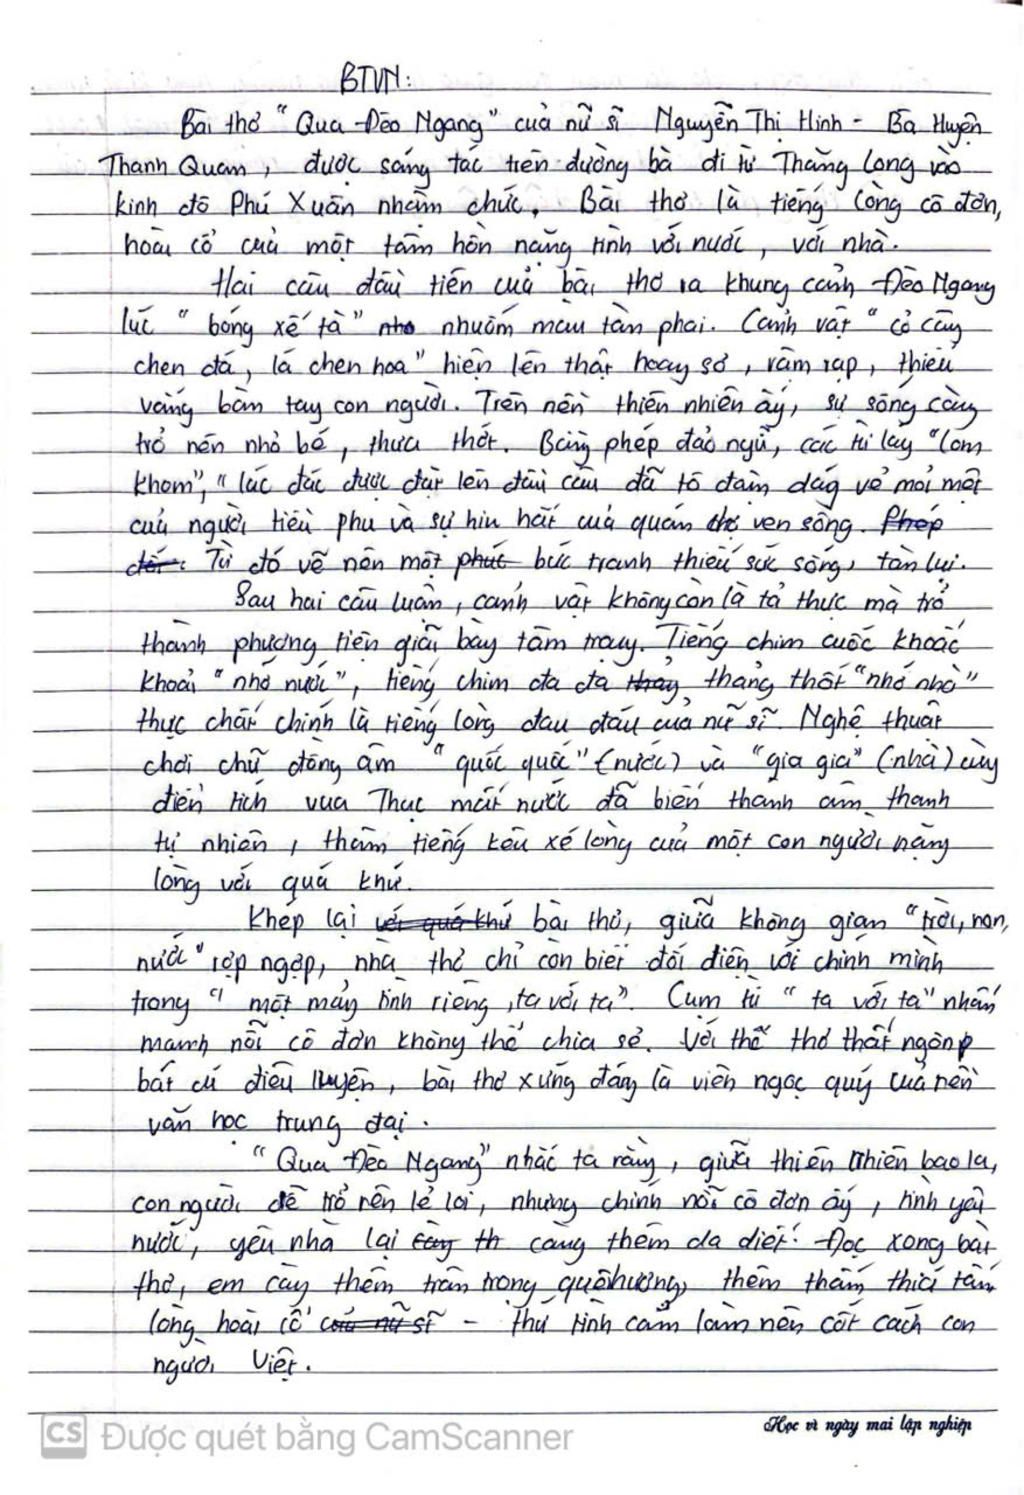 BTVN:
Bài thơ "Qua Đèo Ngang" của nữ sĩ Nguyễn Thị Hinh - Bà Huyện
Thanh Quan, được sáng tác trên đường bà đi từ Thăng Long vào
kinh đô Phú Xuân nhậm chức. Bài thơ là tiếng lòng cô đơn,
hoài cổ của một tâm hồn nặng tình với nước, với nhà.
Hai câu đầu tiên của bài thơ ra khung cảnh Đèo Ngang
lúc "bóng xế tà" nhuốm màu tàn phai. Cảnh vật "cỏ cây
chen đá, lá chen hoa" hiện lên thật hoang sơ, rậm rạp, thiếu
vắng bàn tay con người. Trên nền thiên nhiên ấy, sự sống càng
trở nên nhỏ bé, thưa thớt. Bằng phép đảo ngữ, các từ láy "lom
khom", "lác đác được đặt lên đầu câu đã tô đậm dáng vẻ mỏi mệt
của người tiều phu và sự hiu hắt của quán chợ ven sông. Phép
đối. Từ đó vẽ nên một phút bức tranh thiếu sức sống, tàn lụi.
Sau hai câu luận, cảnh vật không còn là tả thực mà trở
thành phương tiện giãi bày tâm trạng. Tiếng chim cuốc khoắc
khoải "nhớ nước", tiếng chim đa đa thảng thốt "nhớ nhà"
thực chất chính là tiếng lòng đau đáu của nữ sĩ. Nghệ thuật
chơi chữ đồng âm "quốc quốc" (nước) và "gia gia" (nhà) cùng
điển tích vua Thục mất nước đã biến thanh âm thanh
tự nhiên, thành tiếng kêu xé lòng của một con người nặng
lòng với quá khứ.
Khép lại với quá khứ bài thơ, giữa không gian "trời, non,
nước" rợp ngợp, nhà thơ chỉ còn biết đối diện với chính mình
trong "1 một mảnh tình riêng, ta với ta". Cụm từ "ta với ta" nhấn
mạnh nỗi cô đơn không thể chia sẻ. Với thể thơ thất ngôn
bát cú điêu luyện, bài thơ xứng đáng là viên ngọc quý của nền
văn học trung đại.
"Qua Đèo Ngang" nhắc ta rằng, giữa thiên nhiên bao la,
con người dễ trở nên lẻ loi, nhưng chính nỗi cô đơn ấy, tình yêu
nước, yêu nhà lại càng th càng thêm da diết. Đọc xong bài
thơ, em càng thêm trân trọng quê hương, thêm thấm thía tấm
lòng hoài cổ của nữ sĩ - thứ tình cảm làm nên cốt cách con
người Việt.
Học vì ngày mai lập nghiệp
CS Được quét bằng CamScanner